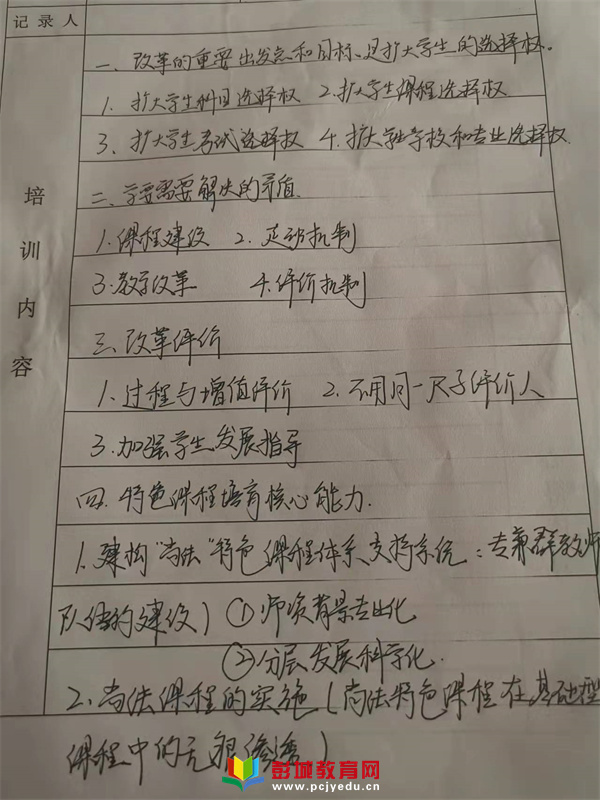 记录人
培训内容
一、改革的重要出发点和目标、是扩大学生的选择权。
1. 扩大学生科目选择权 2. 扩大学生课程选择权
3. 扩大学生考试选择权 4. 扩大学生学校和专业选择权.
二、学要需要解决的矛盾.
1. 课程建设 2. 走班机制
3. 教学改革 4. 评价机制
三、改革评价
1. 过程与增值评价 2. 不用同一尺子评价人
3. 加强学生发展指导
四. 特色课程培育核心能力.
1. 建构"尚法"特色课程体系支持系统:专兼群教师
队伍的建设) ①师资背景专业化
②分层发展科学化.
2. 尚法课程的实施(尚法特色课程在基础型
课程中的无痕渗透)
彭城教育网
www.pcjyedu.cn